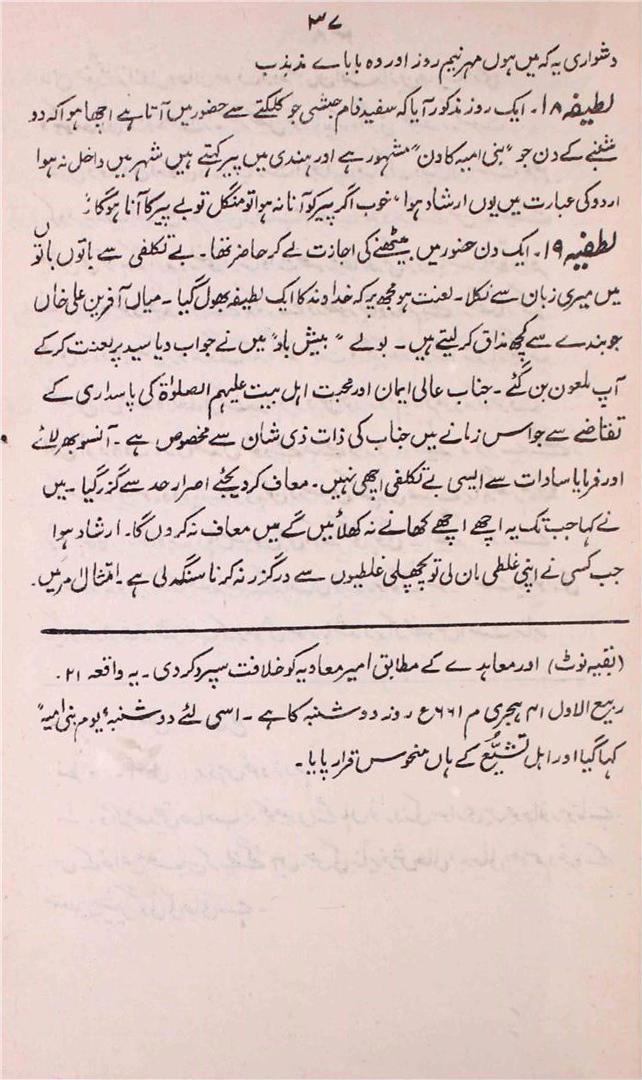 ۳۷
دشواری یہ کہ میں ہوں مہر نیم روز اور وہ بابائے مذبذب
لطیفہ ۱۸۔ ایک روز مذکور آیا کہ سفید فام حبشی جو کلکتے سے حضور میں آتا ہے اچھا ہوا کہ دو
شنبے کے دن جو "بنی امیہ کا دن" مشہور ہے اور ہندی میں پیر کہتے ہیں شہر میں داخل نہ ہوا
اردو کی عبارت میں یوں ارشاد ہوا "خوب اگر پیر کو آنا نہ ہوا تو منگل تو بے پیر کا آنا ہوگا"
لطفیہ ۱۹۔ ایک دن حضور میں بیٹھنے کی اجازت لے کر حاضر تھا۔ بے تکلفی سے باتوں باتوں
میں میری زبان سے نکلا۔ لعنت ہو مجھ پر کہ خداوند کا ایک لطیفہ بھول گیا۔ میاں آفرین علی خاں
جو بندے سے کچھ مذاق کر لیتے ہیں۔ بولے "بیش باد" میں نے جواب دیا سید پر لعنت کر کے
آپ ملعون بن گئے۔ جناب عالی ایمان اور محبت اہل بیت علیہم الصلوٰۃ کی پاسداری کے
تقاضے سے جو اس زمانے میں جناب کی ذات ذی شان سے مخصوص ہے۔ آنسو بھر لائے
اور فرمایا سادات سے ایسی بے تکلفی اچھی نہیں۔ معاف کر دیجئے اصرار حد سے گزر گیا۔ میں
نے کہا جب تک یہ اچھے اچھے کھانے نہ کھلائیں گے میں معاف نہ کروں گا۔ ارشاد ہوا
جب کسی نے اپنی غلطی مان لی تو پچھلی غلطیوں سے درگزر نہ کرنا سنگدلی ہے۔ امتثال امر میں۔
(بقیہ نوٹ) اور معاہدے کے مطابق امیر معاویہ کو خلافت سپرد کر دی۔ یہ واقعہ ۲۱۔
ربیع الاول ۴۱ ہجری م ۶۶۱ء روز دو شنبہ کا ہے۔ اسی لئے دو شنبہ "یوم بنی امیہ"
کہا گیا اور اہل تشیُّع کے ہاں منحوس قرار پایا۔